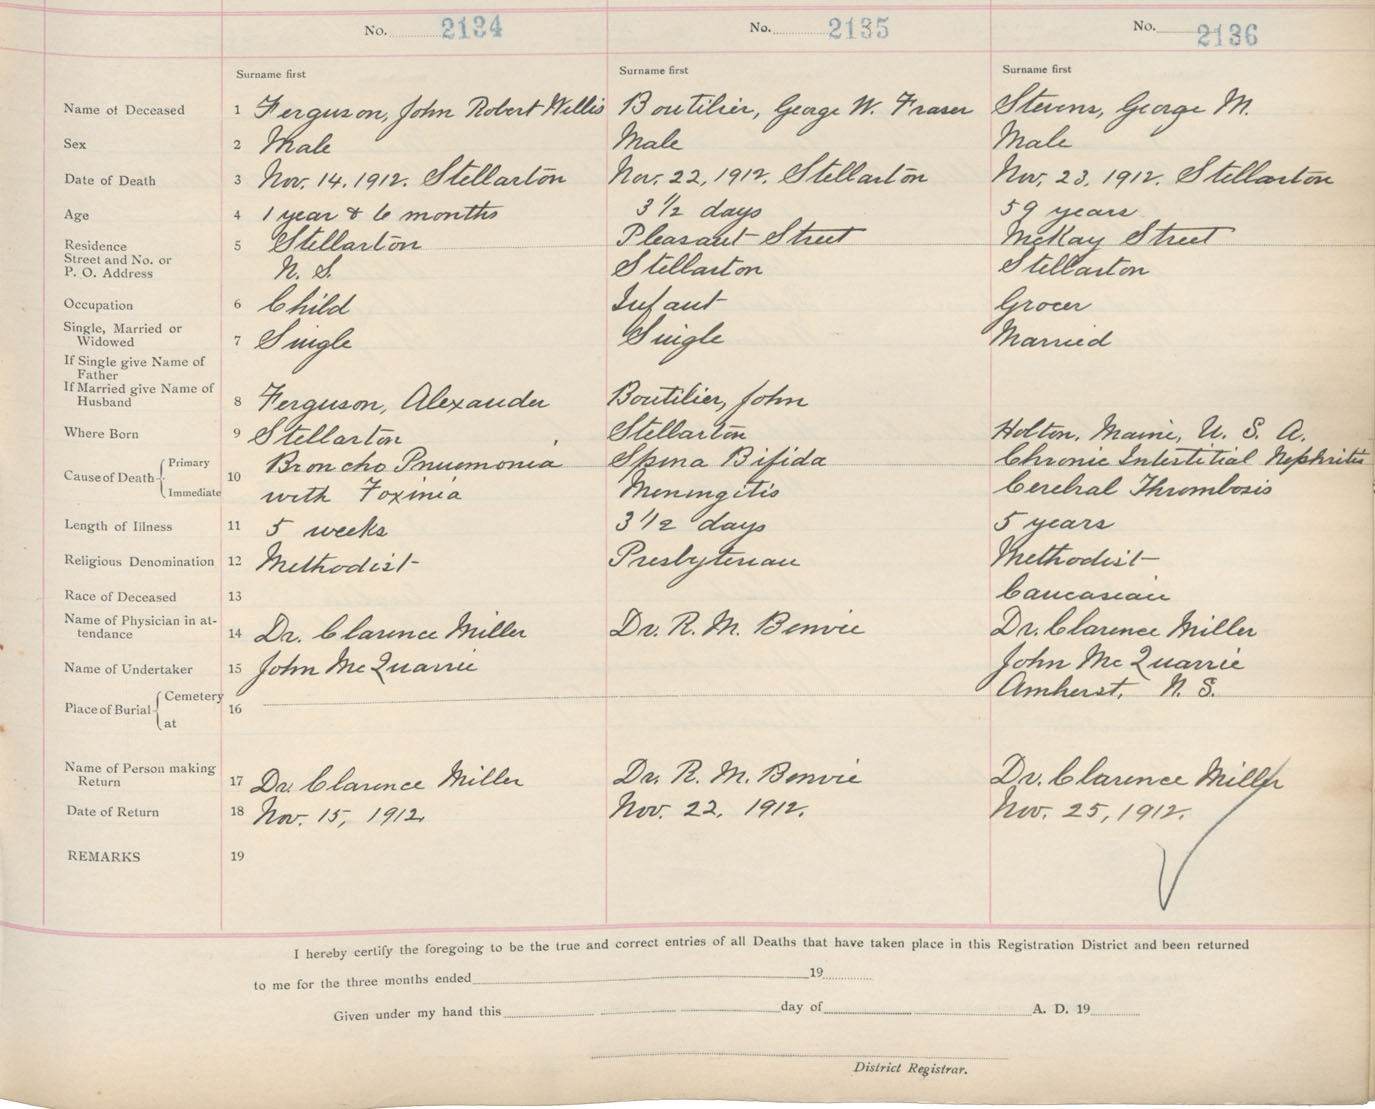 No. 2134 No. 2135 No. 2136
Surname first Surname first Surname first
Name of Deceased 1 Ferguson, John Robert Willis Boutilier, George W. Fraser Stevens, George M.
Sex 2 Male Male Male
Date of Death 3 Nov. 14, 1912. Stellarton Nov. 22, 1912. Stellarton Nov. 23, 1912. Stellarton
Age 4 1 year & 6 months 3 1/2 days 59 years
Residence 5 Stellarton Pleasant Street McKay Street
Street and No. or
P. O. Address N. S. Stellarton Stellarton
Occupation 6 Child Infant Grocer
Single, Married or
Widowed 7 Single Single Married
If Single give Name of
Father
If Married give Name of
Husband 8 Ferguson, Alexander Boutilier, John
Where Born 9 Stellarton Stellarton Holton, Maine, U. S. A.
Cause of Death Primary 10 Broncho Pnuemonia Spina Bifida Chronic Interstitial Nephritis
Immediate with Toxinia Meningitis Cerebral Thrombosis
Length of Illness 11 5 weeks 3 1/2 days 5 years
Religious Denomination 12 Methodist Presbyterian Methodist
Race of Deceased 13 Caucasian
Name of Physician in at-
tendance 14 Dr. Clarence Miller Dr. R. M. Benvie Dr. Clarence Miller
Name of Undertaker 15 John McQuarrie John McQuarrie
Place of Burial Cemetery 16 Amherst, N. S.
at
Name of Person making
Return 17 Dr. Clarence Miller Dr. R. M. Benvie Dr. Clarence Miller
Date of Return 18 Nov. 15, 1912. Nov. 22, 1912. Nov. 25, 1912.
REMARKS 19
I hereby certify the foregoing to be the true and correct entries of all Deaths that have taken place in this Registration District and been returned
to me for the three months ended 19
Given under my hand this day of A. D. 19
District Registrar.